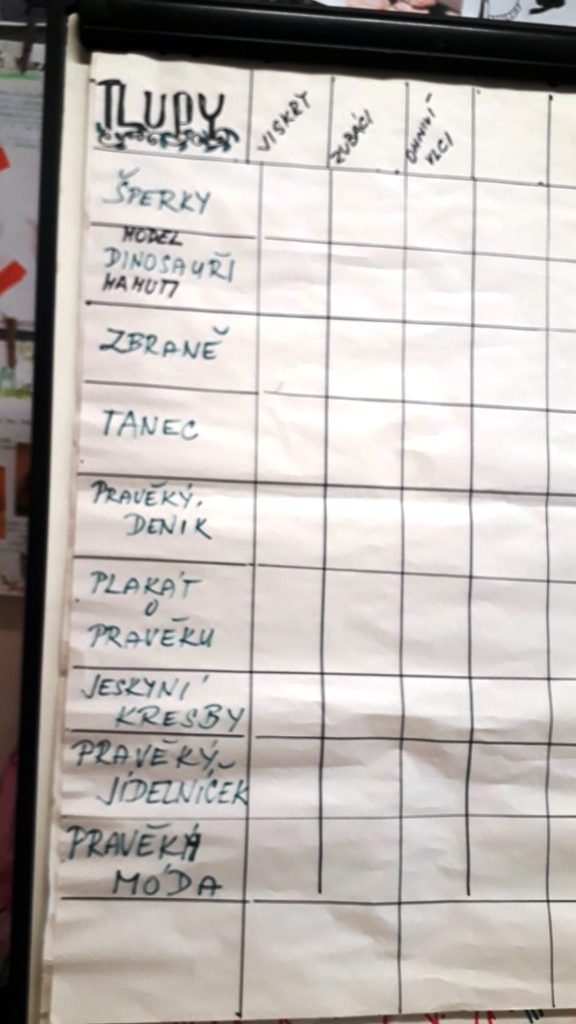 TLUPY
VISKRY
ZUBÁCI
OHNIVÍ
VLCI
ŠPERKY
MODEL
DINOSAUŘI
MAMUTI
ZBRANĚ
TANEC
PRAVĚKÝ
DENIK
PLAKÁT
O
PRAVĚKU
JESKYNÍ
KRESBY
PRAVĚKÝ
JÍDELNÍČEK
PRAVĚKÁ
MÓDA